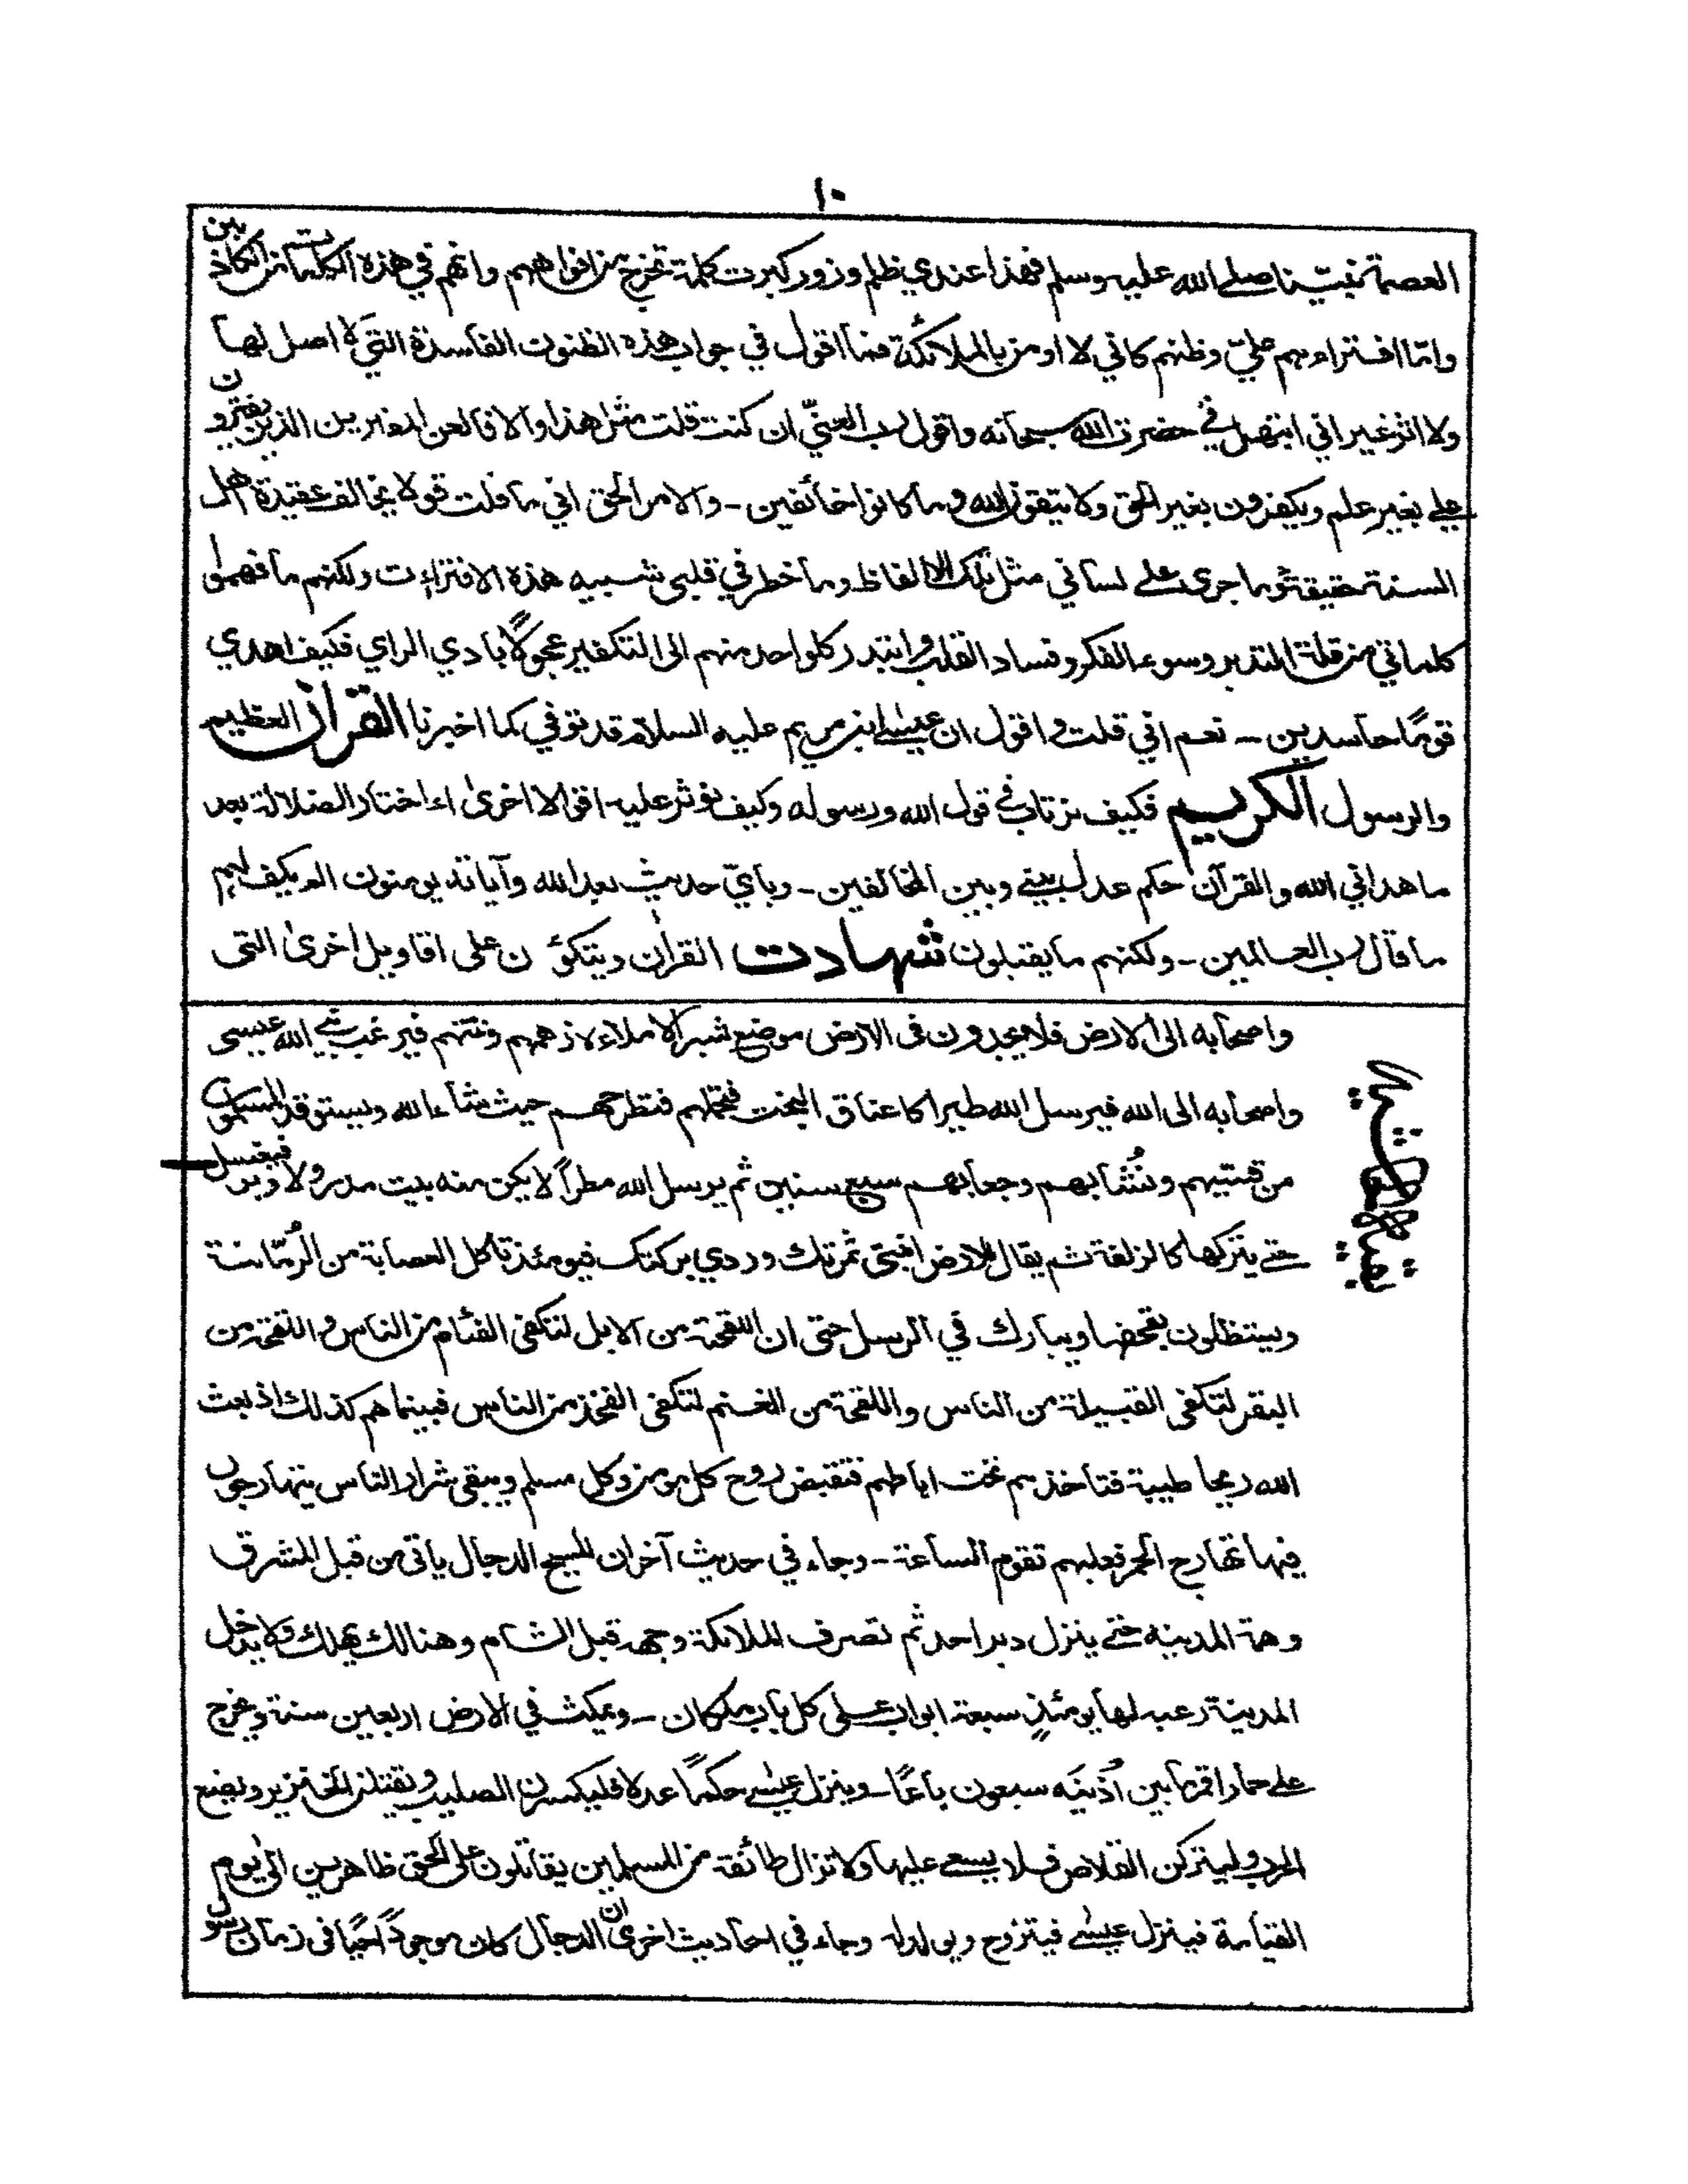 ١٠
العصمة نبيّنا صلے الله عليه وسلم فهذا عندي ظلم وزور كبرت كلمة تخرج من افواههم وانهم في هذه الكلمات من الكاذبين
وامّا افتراءهم عليّ وظنهم كاني لا اومن بالملائكة فما اقول في جواب هذه الظنون الفاسدة التي لا اصل لها
ولا اثر غير اني ابتهل في حضرت الله سبحانه واقول رب العنّي ان كنت قلت مثل هذا والا فالعن المفترين الذين يفترون
علے بغير علم ويكفرون بغير الحق ولا يتقون الله وما كانوا خائفين - والامر الحق اني ما قلت قولا يخالف عقيدة اهل
السنة حقيقة وما جرى علے لساني مثل تلك الالفاظ وما خطر في قلبي شبيه هذه الافتراءت ولكنهم ما فهموا
كلماتي من قلة التدبر وسوء الفكر وفساد القلب وابتدر كلواحد منهم الى التكفير عجولًا بادي الراي فكيف اهدي
قومًا حاسدين -- نعم اني قلت واقول ان عيسٰے ابن مريم عليه السلام قد توفي كما اخبرنا القرآن العظيم
والرسول الكريم فكيف نرتاب في قول الله ورسوله وكيف نوثر عليه اقوالا اخرىٰ ءاختار الضلالة بعد
ما هداني الله والقرآن حكم عدل بيني وبين المخالفين - وبايّ حديث بعد الله وآياته يومنون الم يكف لهم
ما قال رب العالمين - ولكنهم ما يقبلون شهادت القرآن ويتكؤن على اقاويل اخرىٰ التى
واصحابه الى الارض فلا يجدون فى الارض موضع شبر الا ملاءه زهمهم ونتنهم فيرغب نبي الله عيسى
واصحابه الى الله فيرسل الله طيرا كاعناق البخت فتحملهم فتطرحهم حيث شاء الله ويستوقد المسلمون
من قسيهم ونُشّابهم وجعابهم سبع سنين ثم يرسل الله مطراً لا يكن منه بيت مدر ولا وبر فيغسل
حتے يتركها كالزلفة ثم يقال للارض انبتى ثمرتك وردي بركتك فيومئذ تاكل العصابة من الرُمّانة
ويستظلون بقحفها ويبارك في الرسل حتى ان اللقحة من الابل لتكفى الفئام من الناس واللقحة من
البقر لتكفى القبيلة من الناس واللقحة من الغنم لتكفى الفخذ من الناس فبينما هم كذلك اذ بعث
الله ريحا طيبة فتاخذهم تحت اباطهم فتقبض روح كل مومن وكل مسلم ويبقى شرار الناس يتهارجون
فيها تهارج الحمر فعليهم تقوم الساعة - وجاء في حديث آخر ان المسيح الدجال ياتى من قبل المشرق
وهمة المدينة حتے ينزل دبر احد ثم تصرف الملائكة وجهه قبل الشام وهنالك يهلك ولا يدخل
المدينة رعبه لها يومئذٍ سبعة ابواب علے كل باب ملكان - ويمكث في الارض اربعين سنة ويخرج
علے حمار اقمر ما بين اُذنيَه سبعون باعًا - وينزل عيسٰے حكمًا عدلا فليكسرن الصليب ويقتلن الخنزير ويضع
الحرب وليتركن القلاص فلا يسعے عليها ولا تزال طائفة من المسلمين يقاتلون على الحق ظاهرين الى يوم
القيامة فينزل عيسٰے فيتزوج ويولد له وجاء في احاديث اخرى ان الدجال كان موجودًا حيًا فى زمان رسول
بقية الحاشية